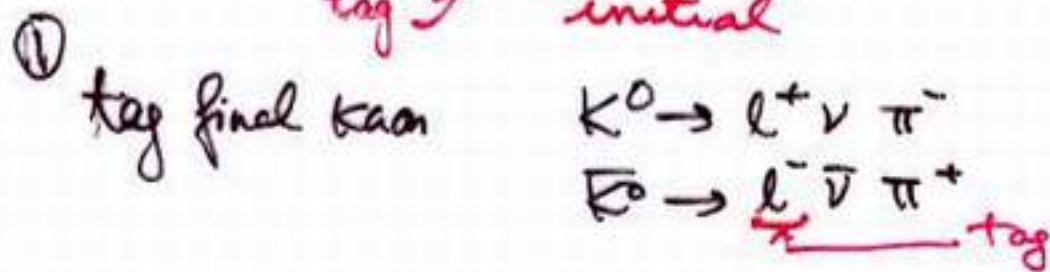 tag initial
①
tag final kaon K⁰ → l⁺ ν π⁻
K̅⁰ → l⁻ ν̅ π⁺
tag